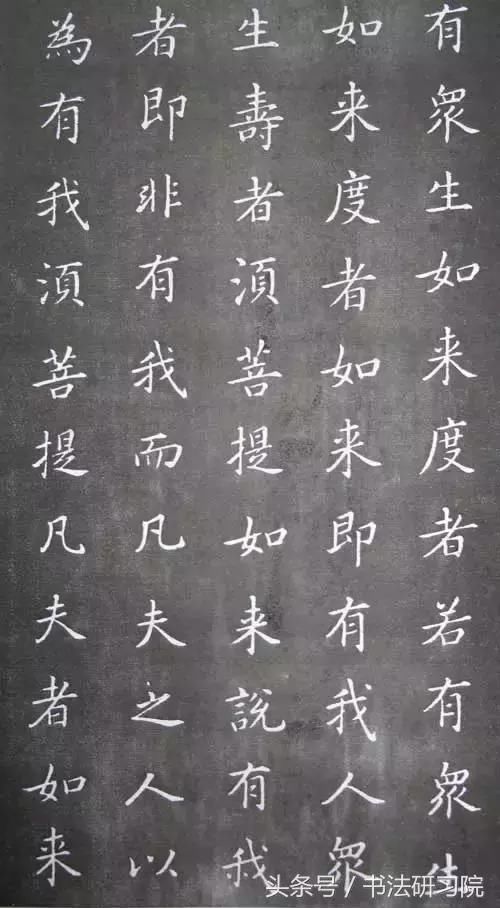 有眾生如来度者若有眾生
如来度者如来即有我人眾
生壽者湏菩提如来說有我
者即非有我而凡夫之人以
為有我湏菩提凡夫者如来
头条号 / 书法研习院